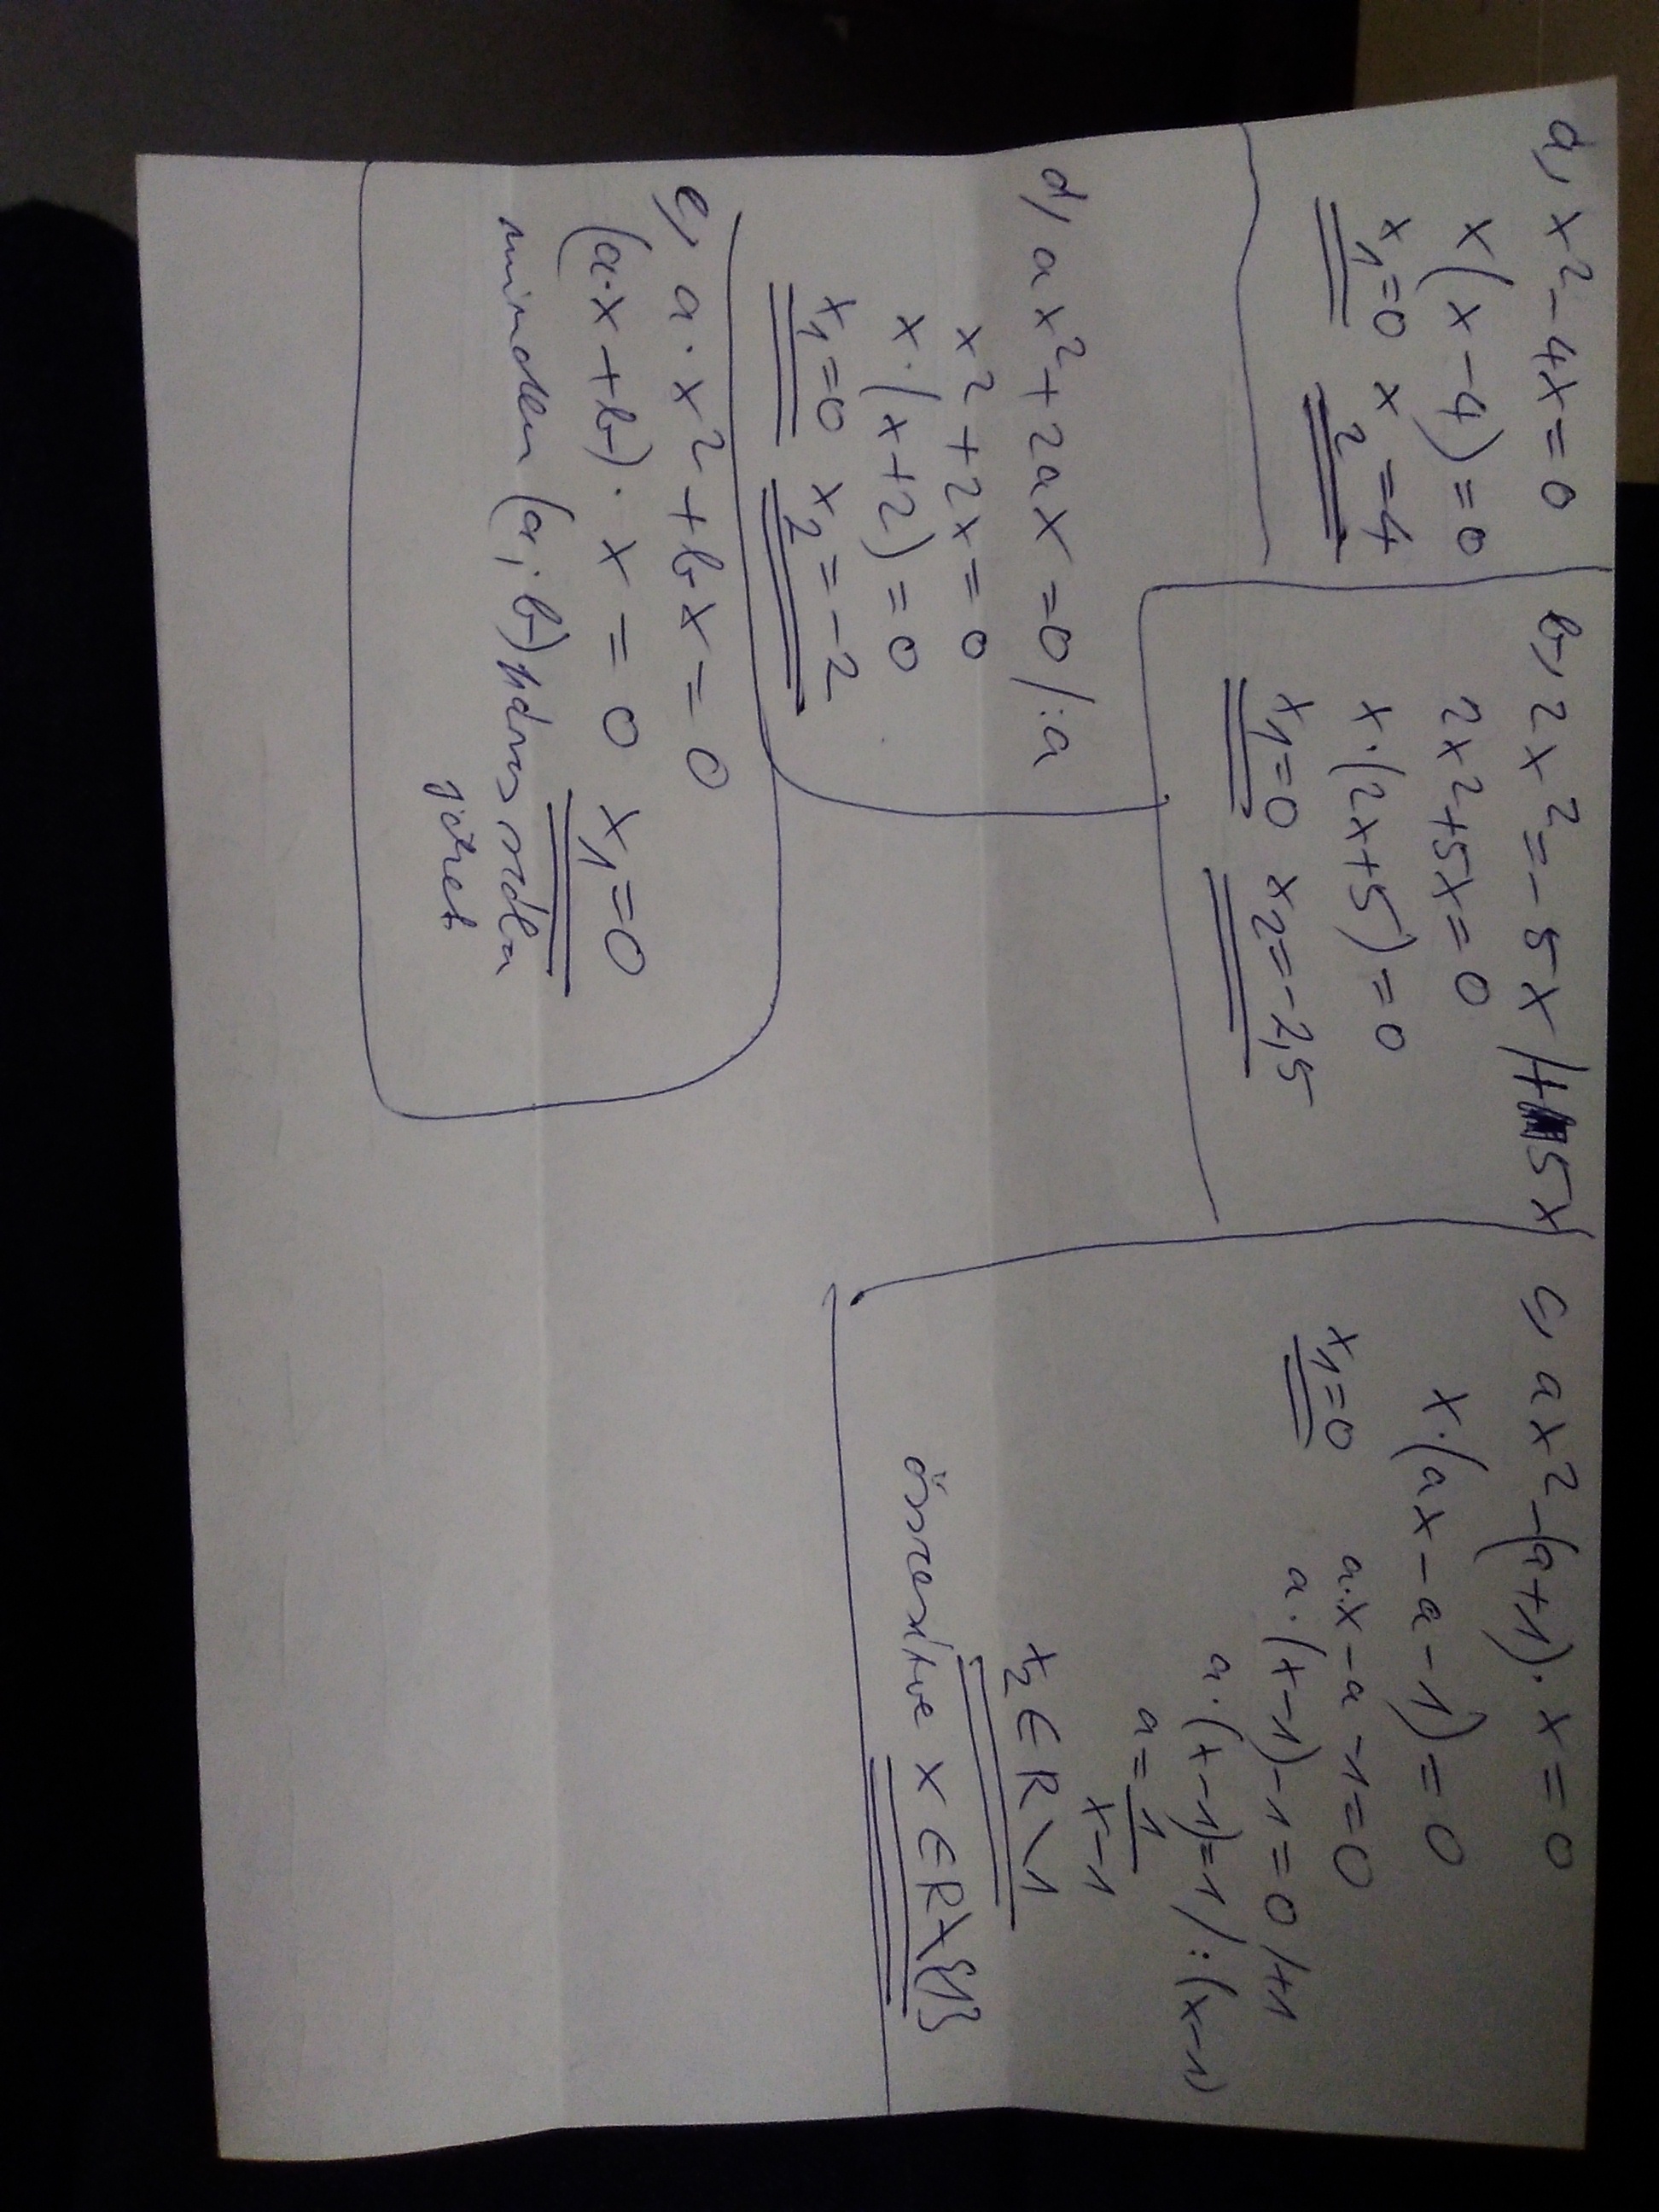 a, x² - 4x = 0
x(x - 4) = 0
x₁=0 x₂=4
b, 2x² = -5x /+5x
2x² + 5x = 0
x·(2x+5) = 0
x₁=0 x₂=-2,5
c, ax² - (a+1)·x = 0
x·(ax - a - 1) = 0
x₁=0 a·x - a - 1 = 0
a·(x-1) - 1 = 0 /+1
a·(x-1) = 1 /:(x-1)
a = 1/(x-1)
x₂ ∈ R \ 1
összesítve x ∈ R \ {1}
d, ax² + 2ax = 0 /:a
x² + 2x = 0
x·(x+2) = 0
x₁=0 x₂=-2
e, a·x² + bx = 0
(a·x + b)·x = 0 x₁=0
minden (a; b)